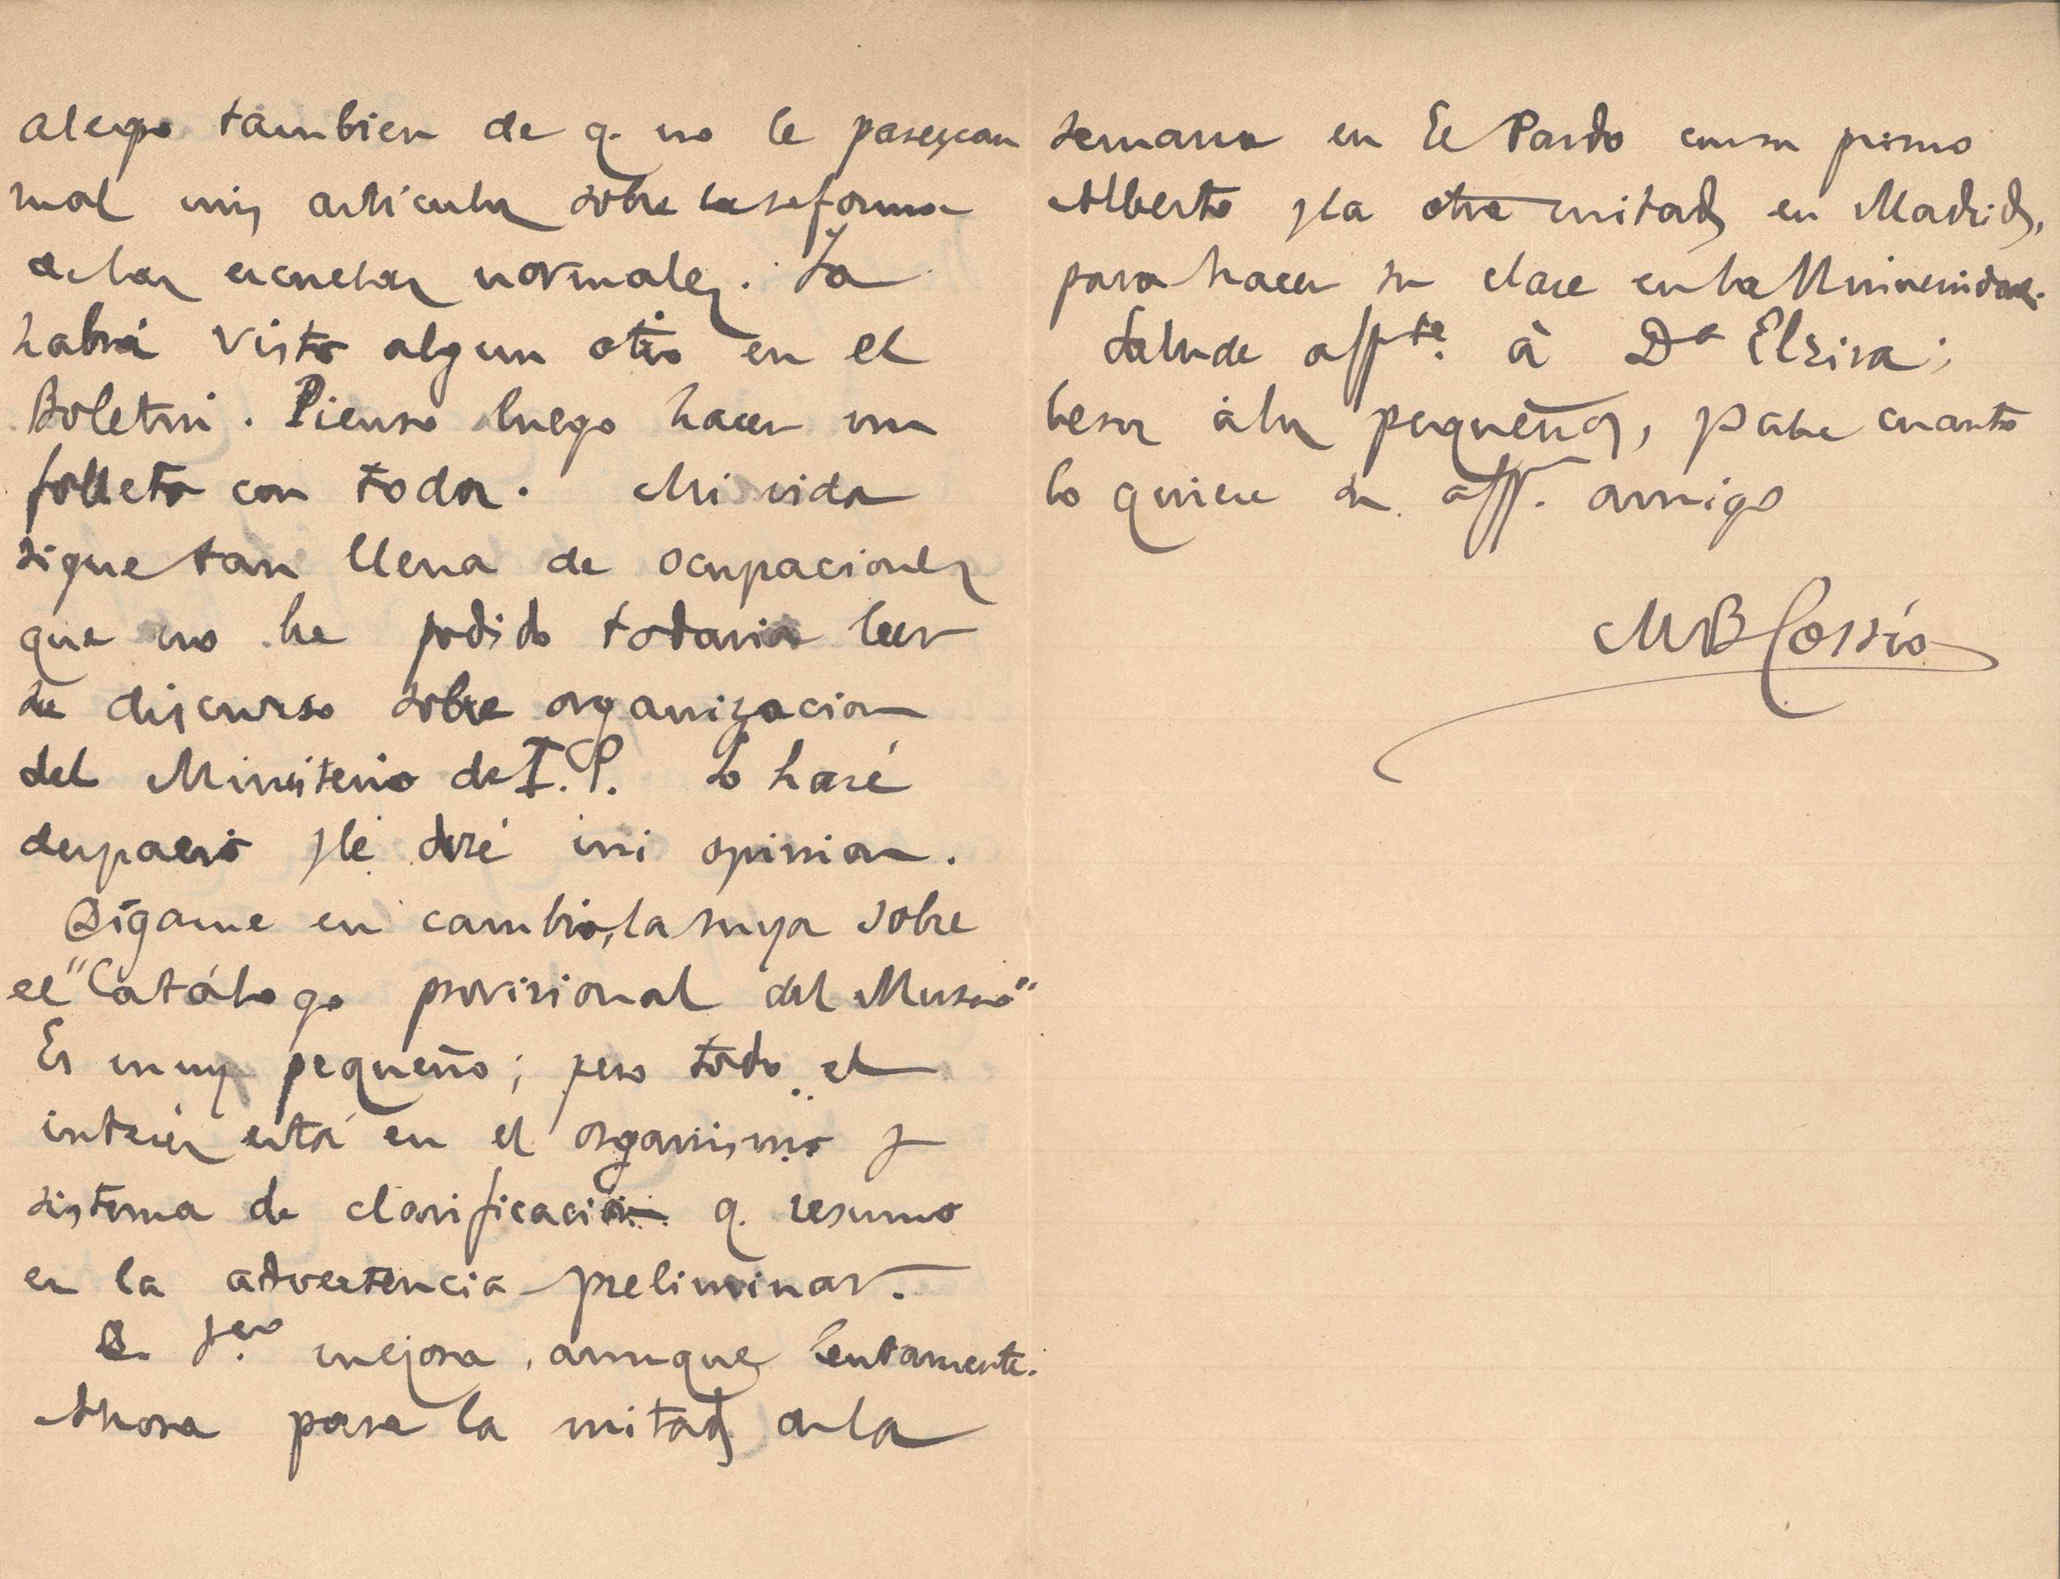 alegro tambien de q. no le parezcan
mal mis artículos sobre la reforma
de las escuelas normales. Ya
habrá visto algun otro en el
Boletin. Pienso luego hacer un
folleto con todos. Mi vida
sigue tan llena de ocupaciones
que no he podido todavia leer
su discurso sobre organizacion
del Ministerio de I. P. Lo haré
despacio y le diré mi opinion.
Dígame en cambio, la suya sobre
el "Catálogo provisional del Museo"
Es muy pequeño; pero todo el
interés está en el organismo y
sistema de clasificacion q. resumo
en la advertencia preliminar.
D. Fco mejora, aunque lentamente.
Ahora pasa la mitad de la
semana en El Pardo con su primo
Alberto y la otra mitad en Madrid,
para hacer su clase en la Universidad.
Salude affte. à Da Elzira;
besos à los pequeños, y sabe cuanto
lo quiere su aff. amigo
MB Cossío